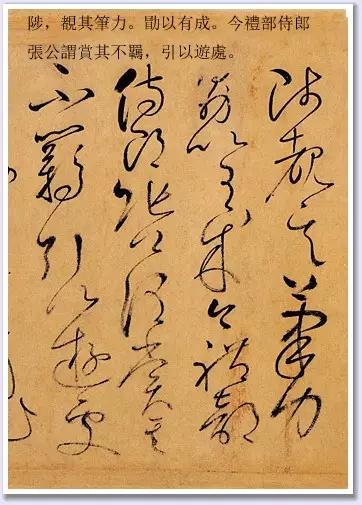 陟，覩其筆力。勖以有成。今禮部侍郎
張公謂賞其不羈，引以遊處。
陟覩其筆力
勖以有成今禮部
侍郎張公謂賞其
不羈引以遊處